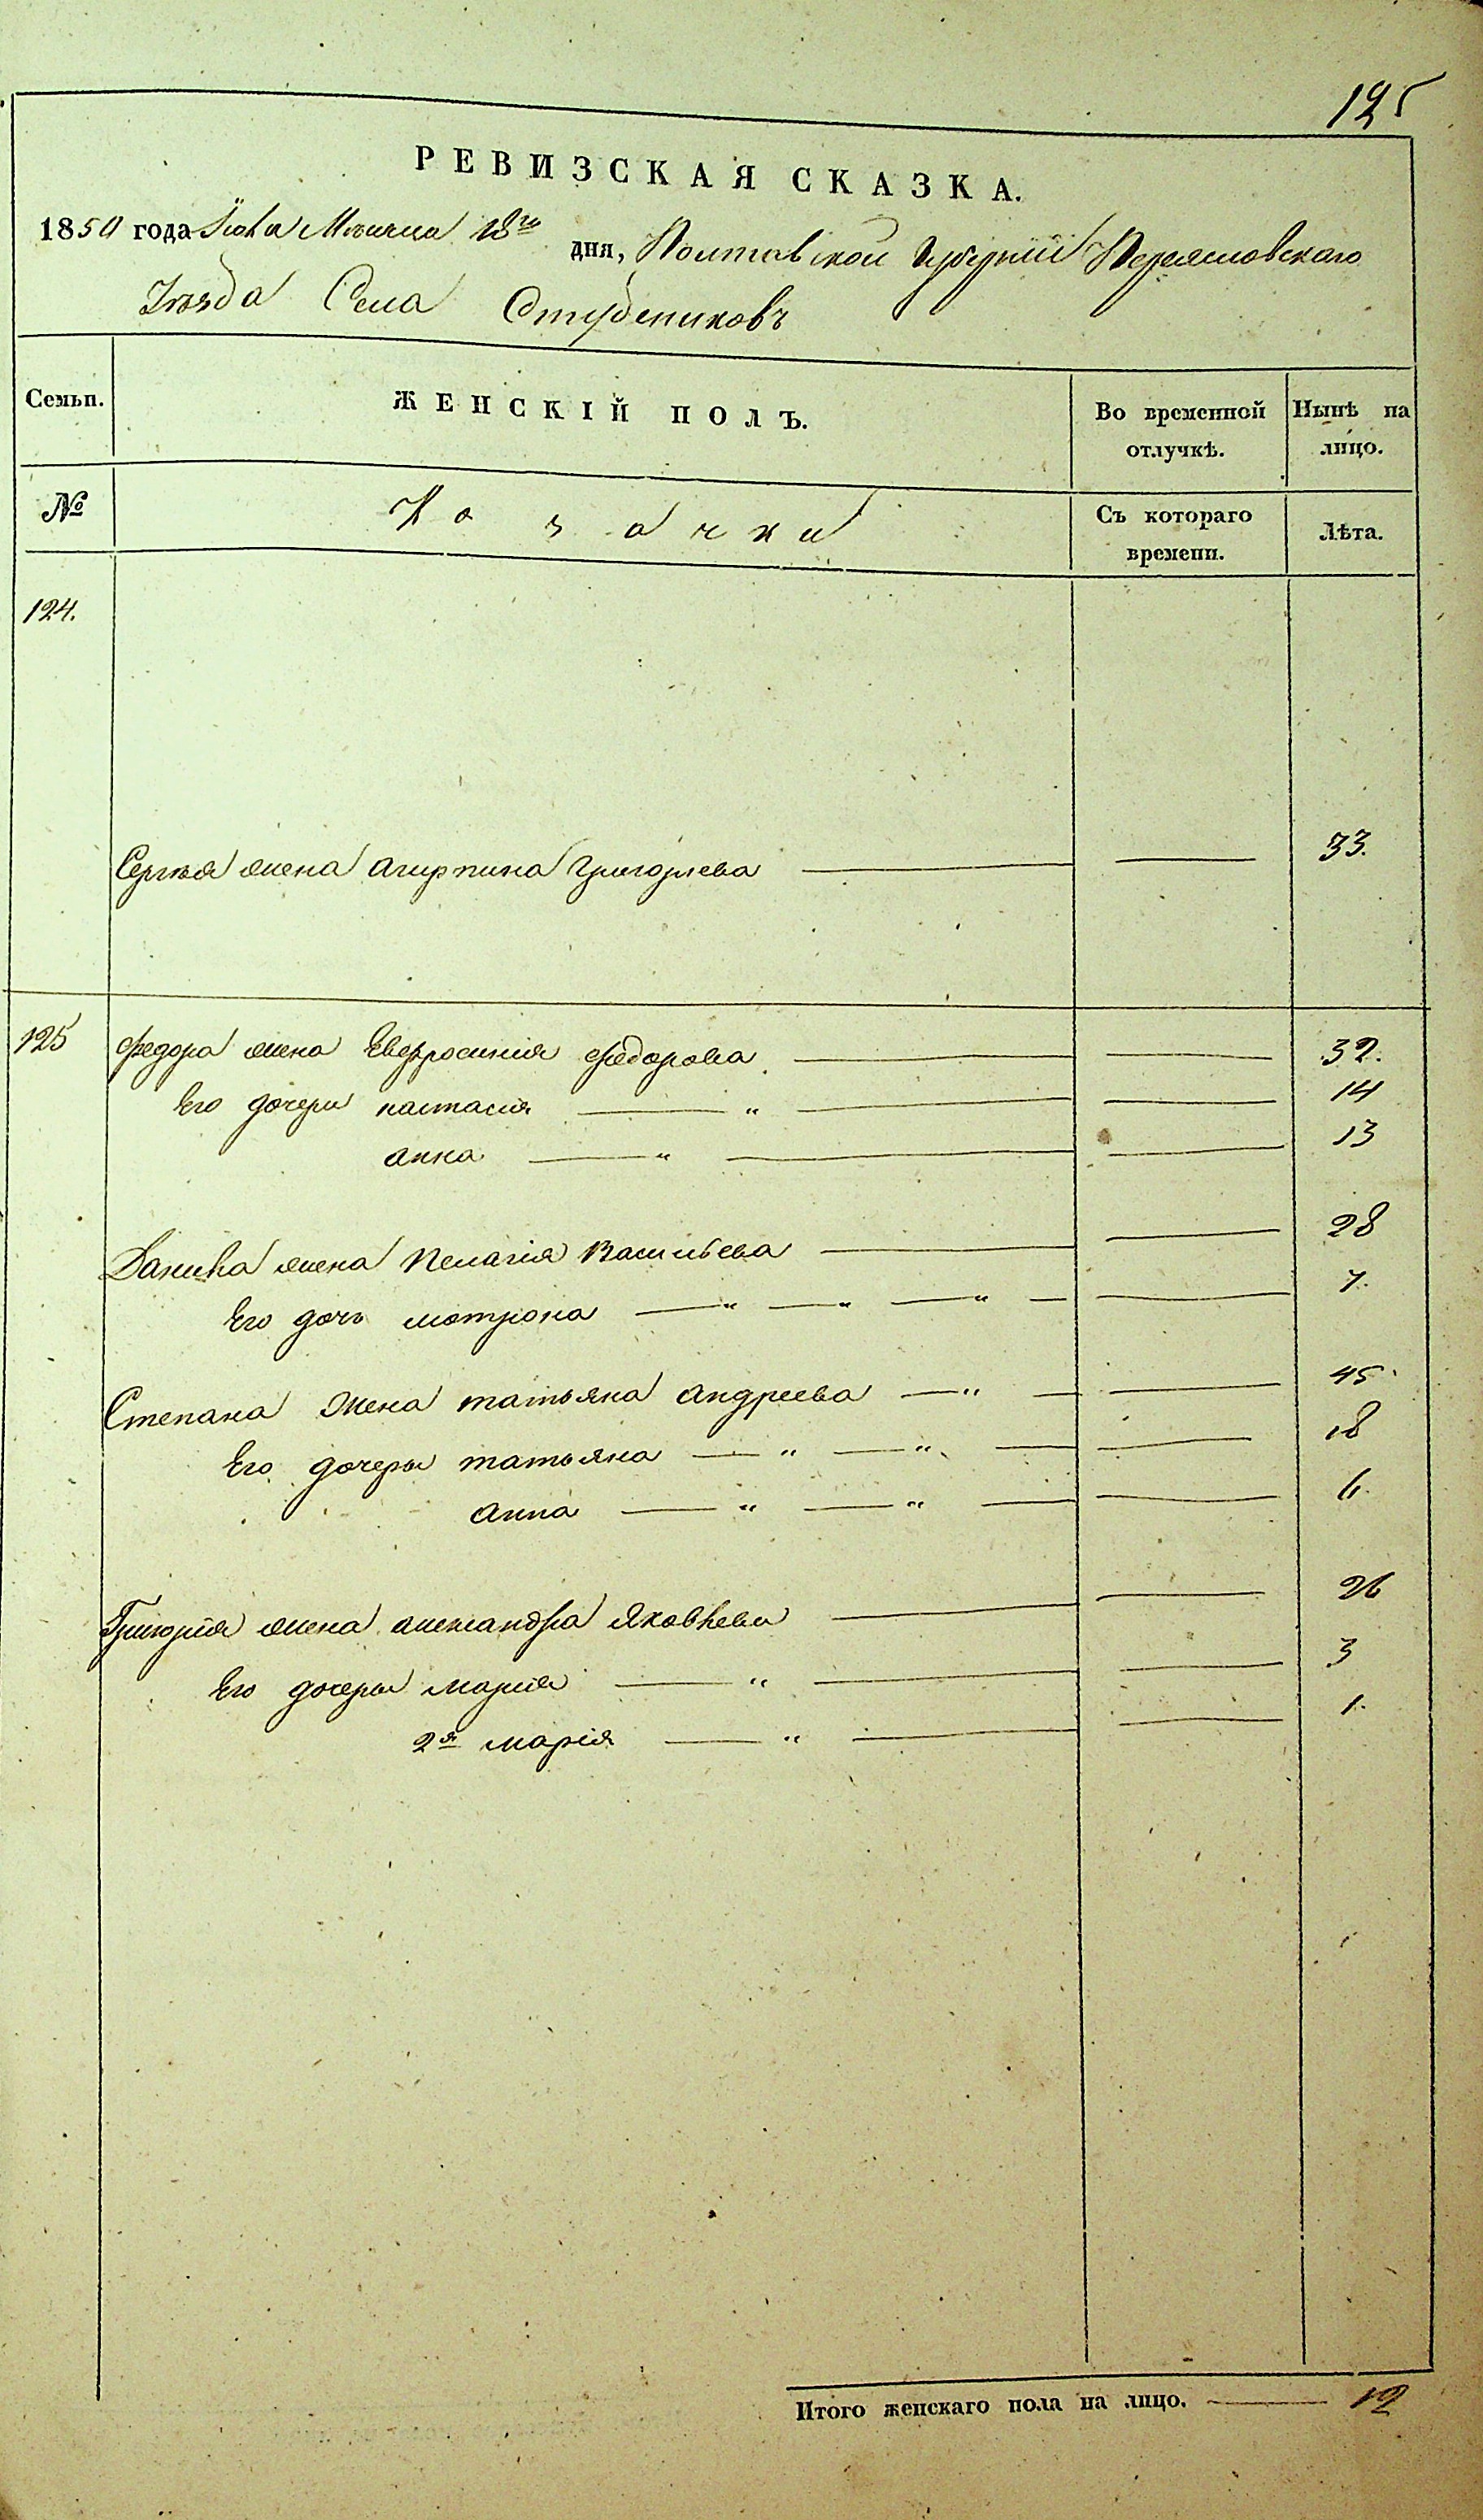 125
РЕВИЗСКАЯ СКАЗКА.
1850 года Іюля Мѣсяца 18го дня, Полтавской Губерніи Переясловскаго
Уѣзда Села Студениковъ
Семьи. ЖЕНСКІЙ ПОЛЪ. Во временной отлучкѣ. Нынѣ на лицо.
№ Козачки Съ котораго времени. Лѣта.
124.
Сергѣя жена Агирпина Григорѣева 33.
125 Федора жена Евфросинія Федорова 32.
Его дочери настасія " 14
анна " 13
Данила жена Пелагія Васильева 28
Его дочь мотрона " " " 7.
Степана Жена татьяна андреева " 45
Его дочеры татьяна " " 18
анна " " 6.
Григорія жена александра Яковлева 26
Его дочеры марія " 3
2я марія " 1.
Итого женскаго пола на лицо. 12